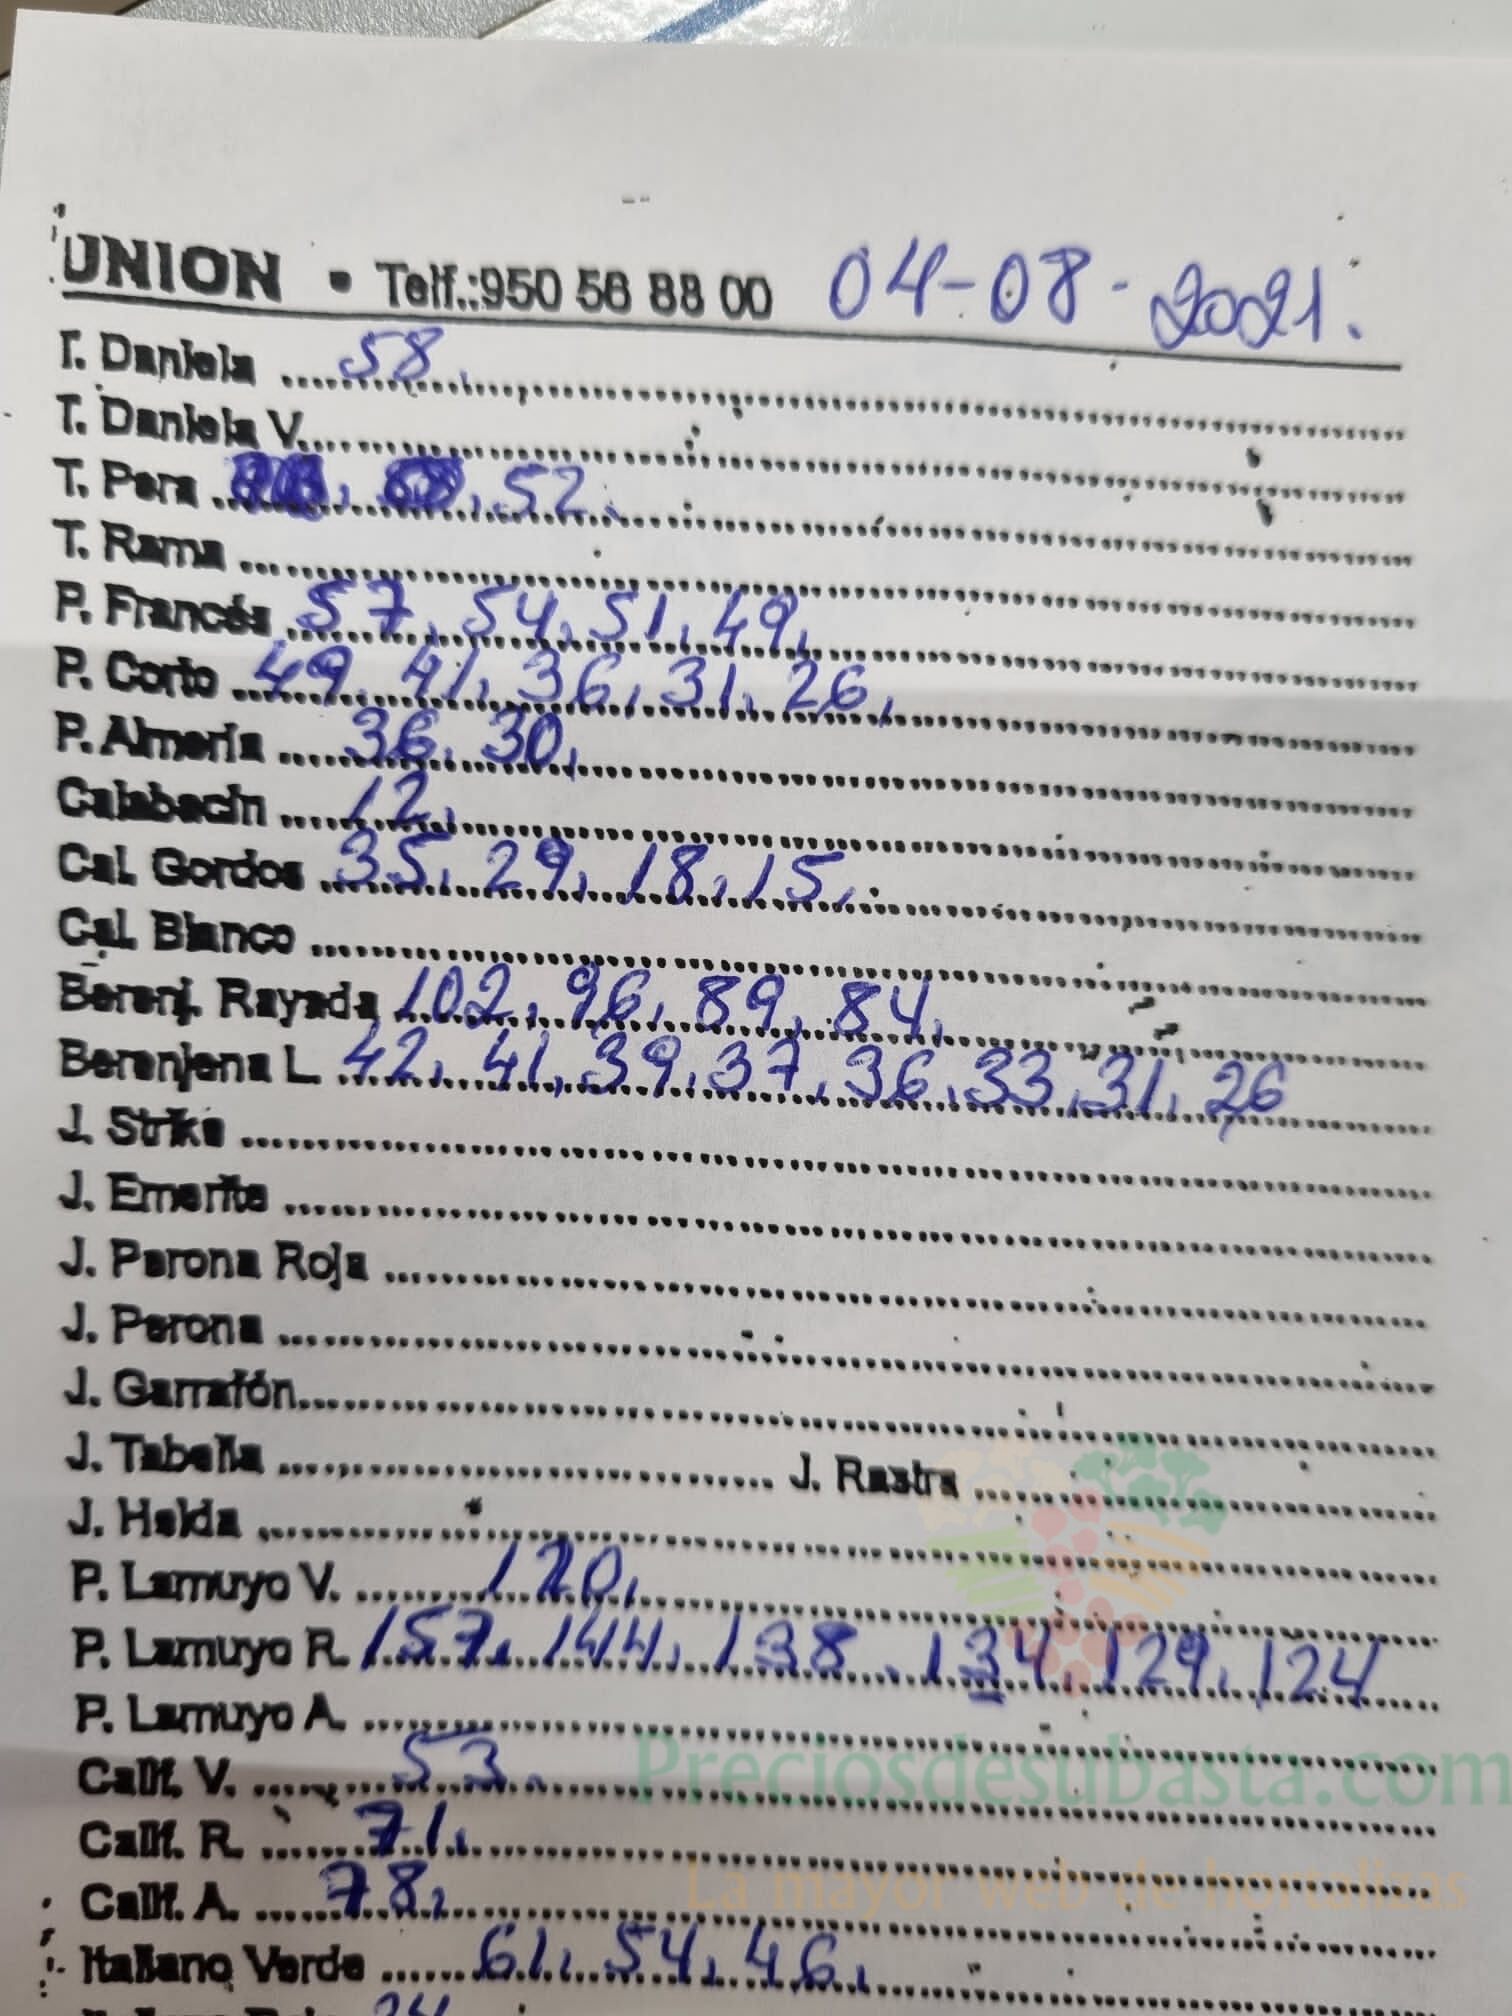 UNION • Telf.:950 56 88 00 04-08-2021.
T. Daniela ..... 58.
T. Daniela V. .....
T. Pera ..... 52.
T. Rama .....
P. Francés ..... 57, 54, 51, 49,
P. Corto ..... 49, 41, 36, 31, 26,
P. Almería ..... 36, 30,
Calabacín ..... 12,
Cal. Gordos ..... 35, 29, 18, 15,
Cal. Blanco .....
Berenj. Rayada 102, 96, 89, 84,
Berenjena L. 42, 41, 39, 37, 36, 33, 31, 26
J. Strike .....
J. Emerite .....
J. Perona Roja .....
J. Perona .....
J. Garrafón.....
J. Tabella ..... J. Rastra .....
J. Helda .....
P. Lamuyo V. ..... 120,
P. Lamuyo R. 157, 144, 138, 134, 129, 124
P. Lamuyo A. .....
Calif. V. ..... 53.
Calif. R. ..... 71,
Calif. A. ..... 78,
Italiano Verde ..... 61, 54, 46,
Preciosdesubasta.com
La mayor web de hortalizas